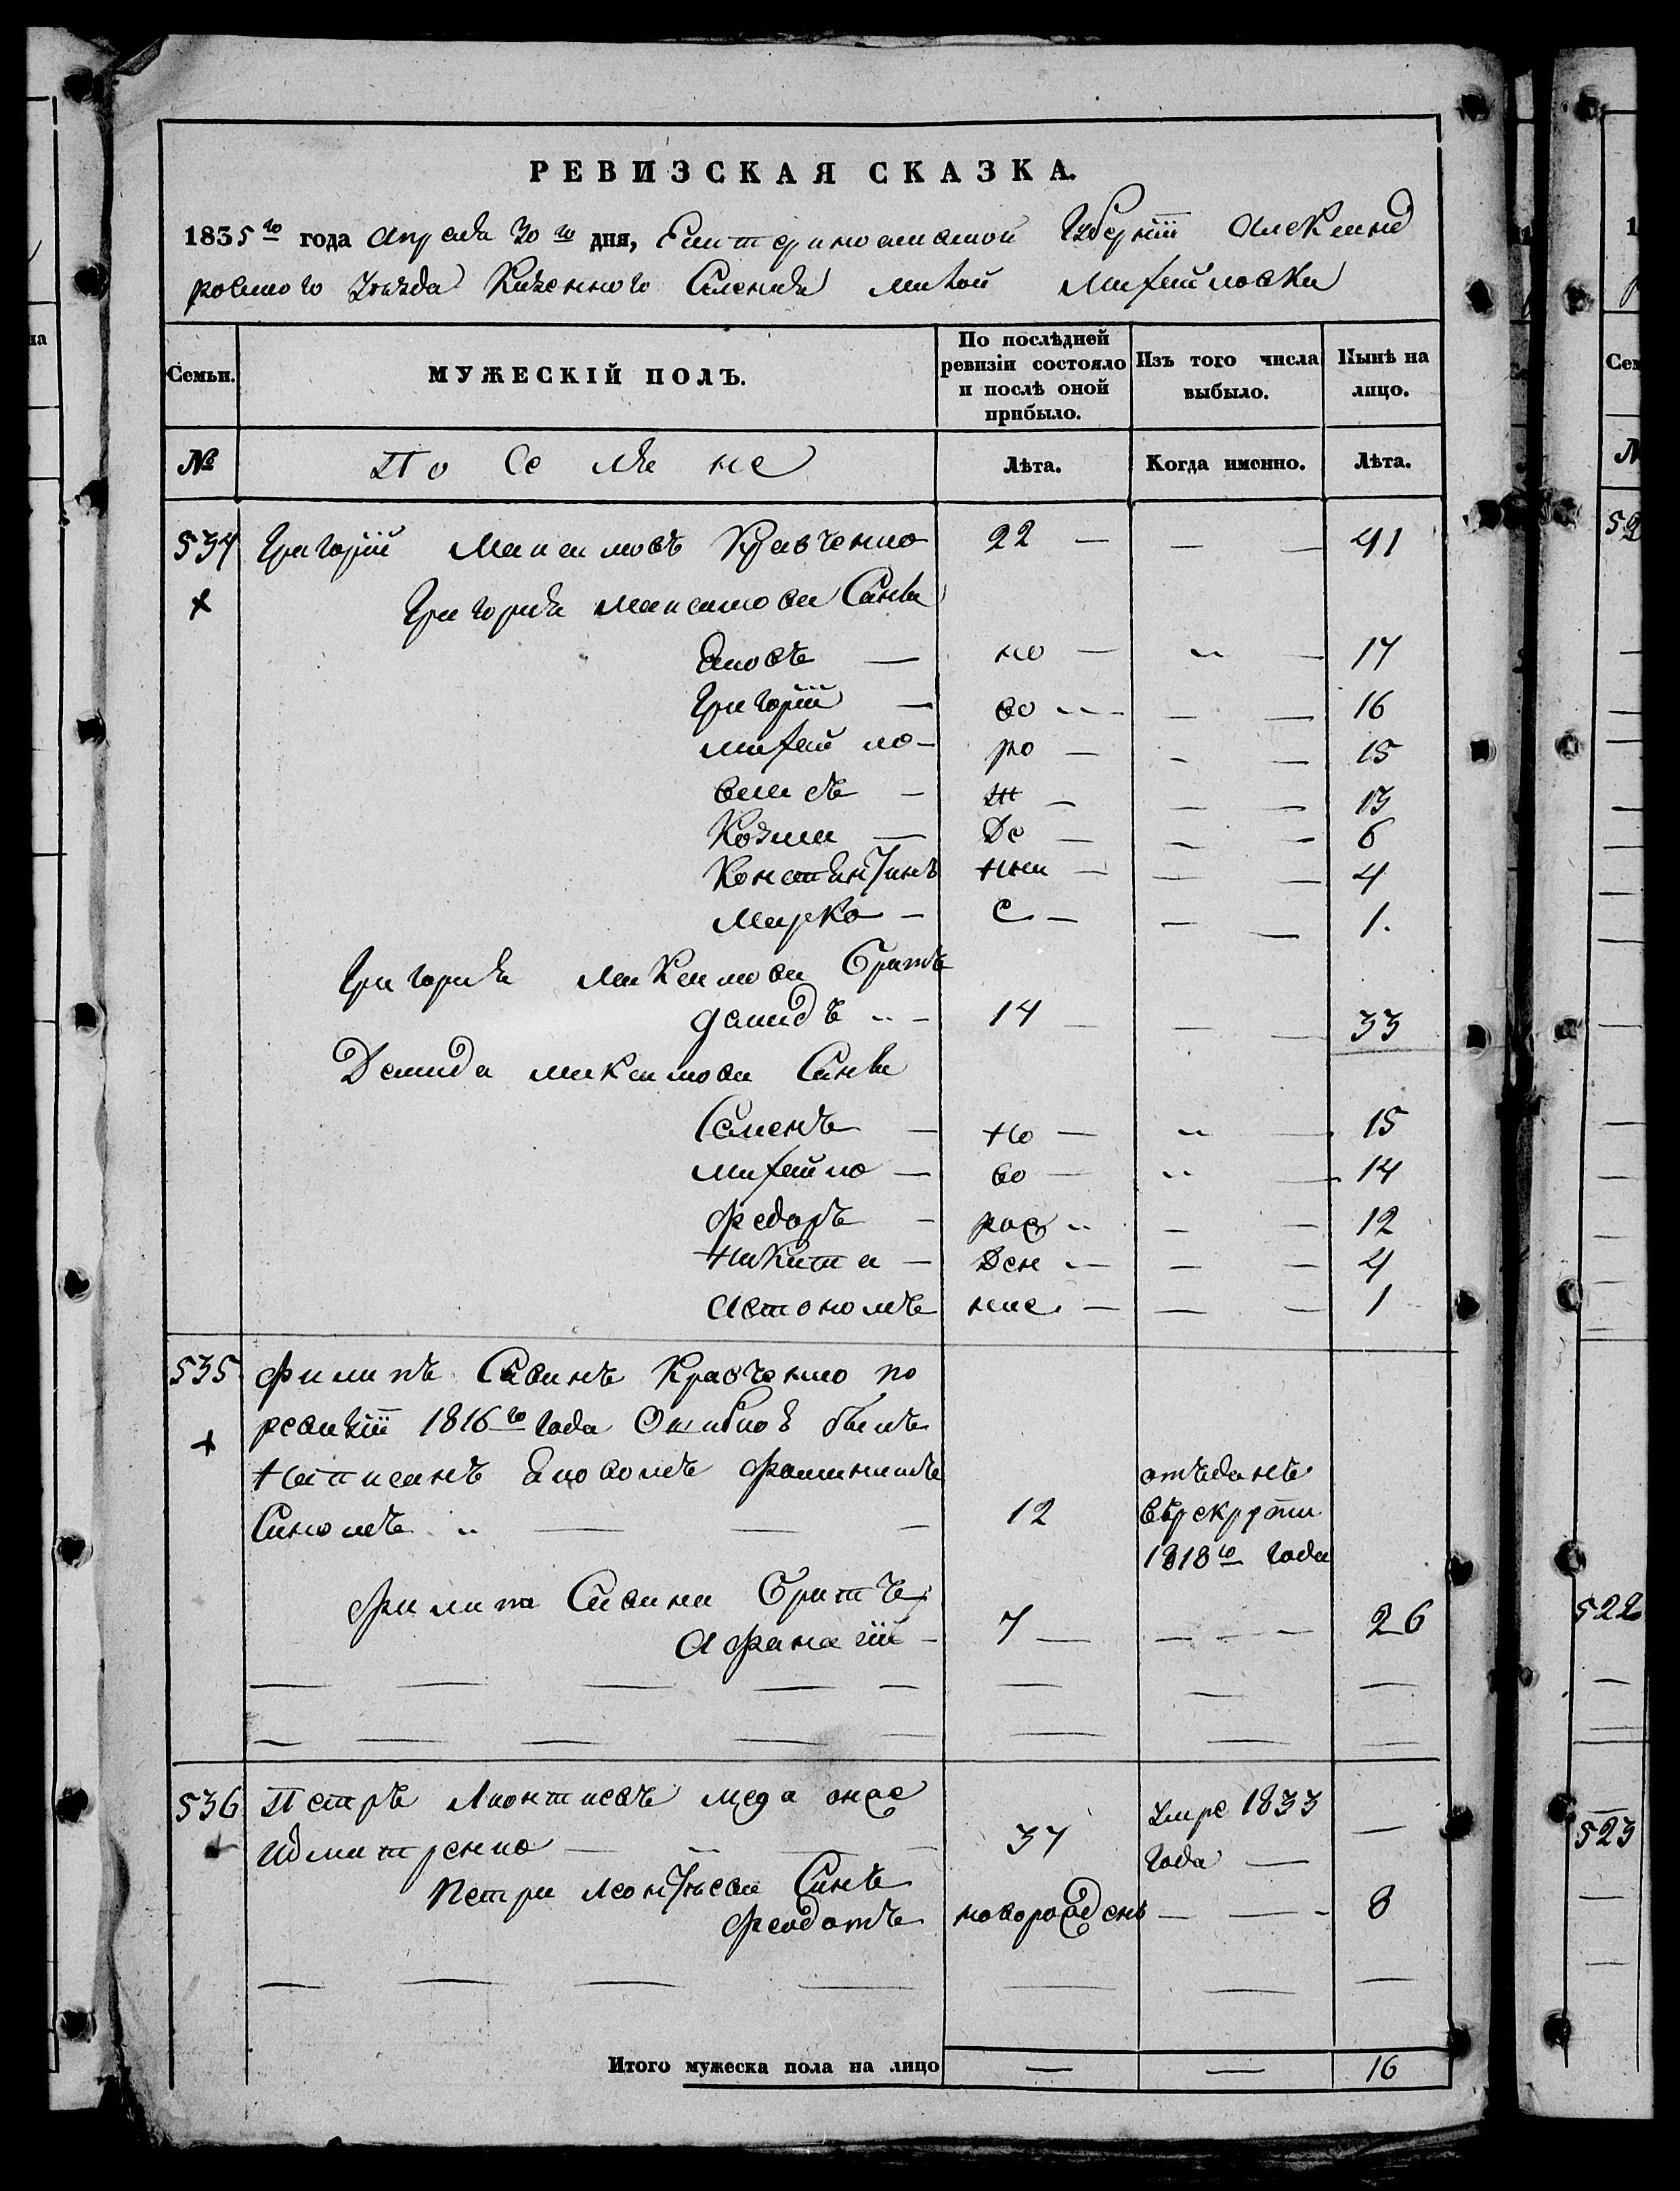 РЕВИЗСКАЯ СКАЗКА.
1835го года Апреля 30го дня, Екатеринославской Губерніи Александ
ровского Уѣзда Казенного Селенія малой Михайловки
Семьи.
МУЖЕСКІЙ ПОЛЪ.
По послѣдней ревизіи состояло и послѣ оной прибыло.
Изъ того числа выбыло.
Нынѣ на лицо.
№ Поселяне Лѣта. Когда именно. Лѣта.
534 Григорій Максимовъ Кравченко 22 — — — 41
Григорія Максимова Синьи
Яковъ — но — „ — 17
Григорій — во — — — 16
Михайло — ро — — — 15
— — — 13
Козма — де — — — 6
Константинъ нни — — — 4
Марко — е — — — 1.
Григорія Максимова Братъ
Демидъ — 14 — — — 33
Демида Максимова Синьи
Семенъ — но — „ — 15
Михайло — во — „ — 14
Федоръ — рож „ — — 12
Никита — ден — — — 4
Астономъ ние — — — 1
535 Филипъ Савинъ Кравченко по
ревизіи 1816го года Ошибкой былъ
написанъ Яковомъ
Синомъ „ — — — 12 отъданъ въ рекруты 1818го года
Филипа Савина Братъ
Афанасій — 7 — — — — 26
536 Петръ Лионтиевъ онже
Идмитренко — — — 37 умре 1833 года — —
Петра Леонтьева Синъ
Феодотъ новорожденъ — — — 8
Итого мужеска пола на лицо — — 16
1
на
Сем
№
52
522
523